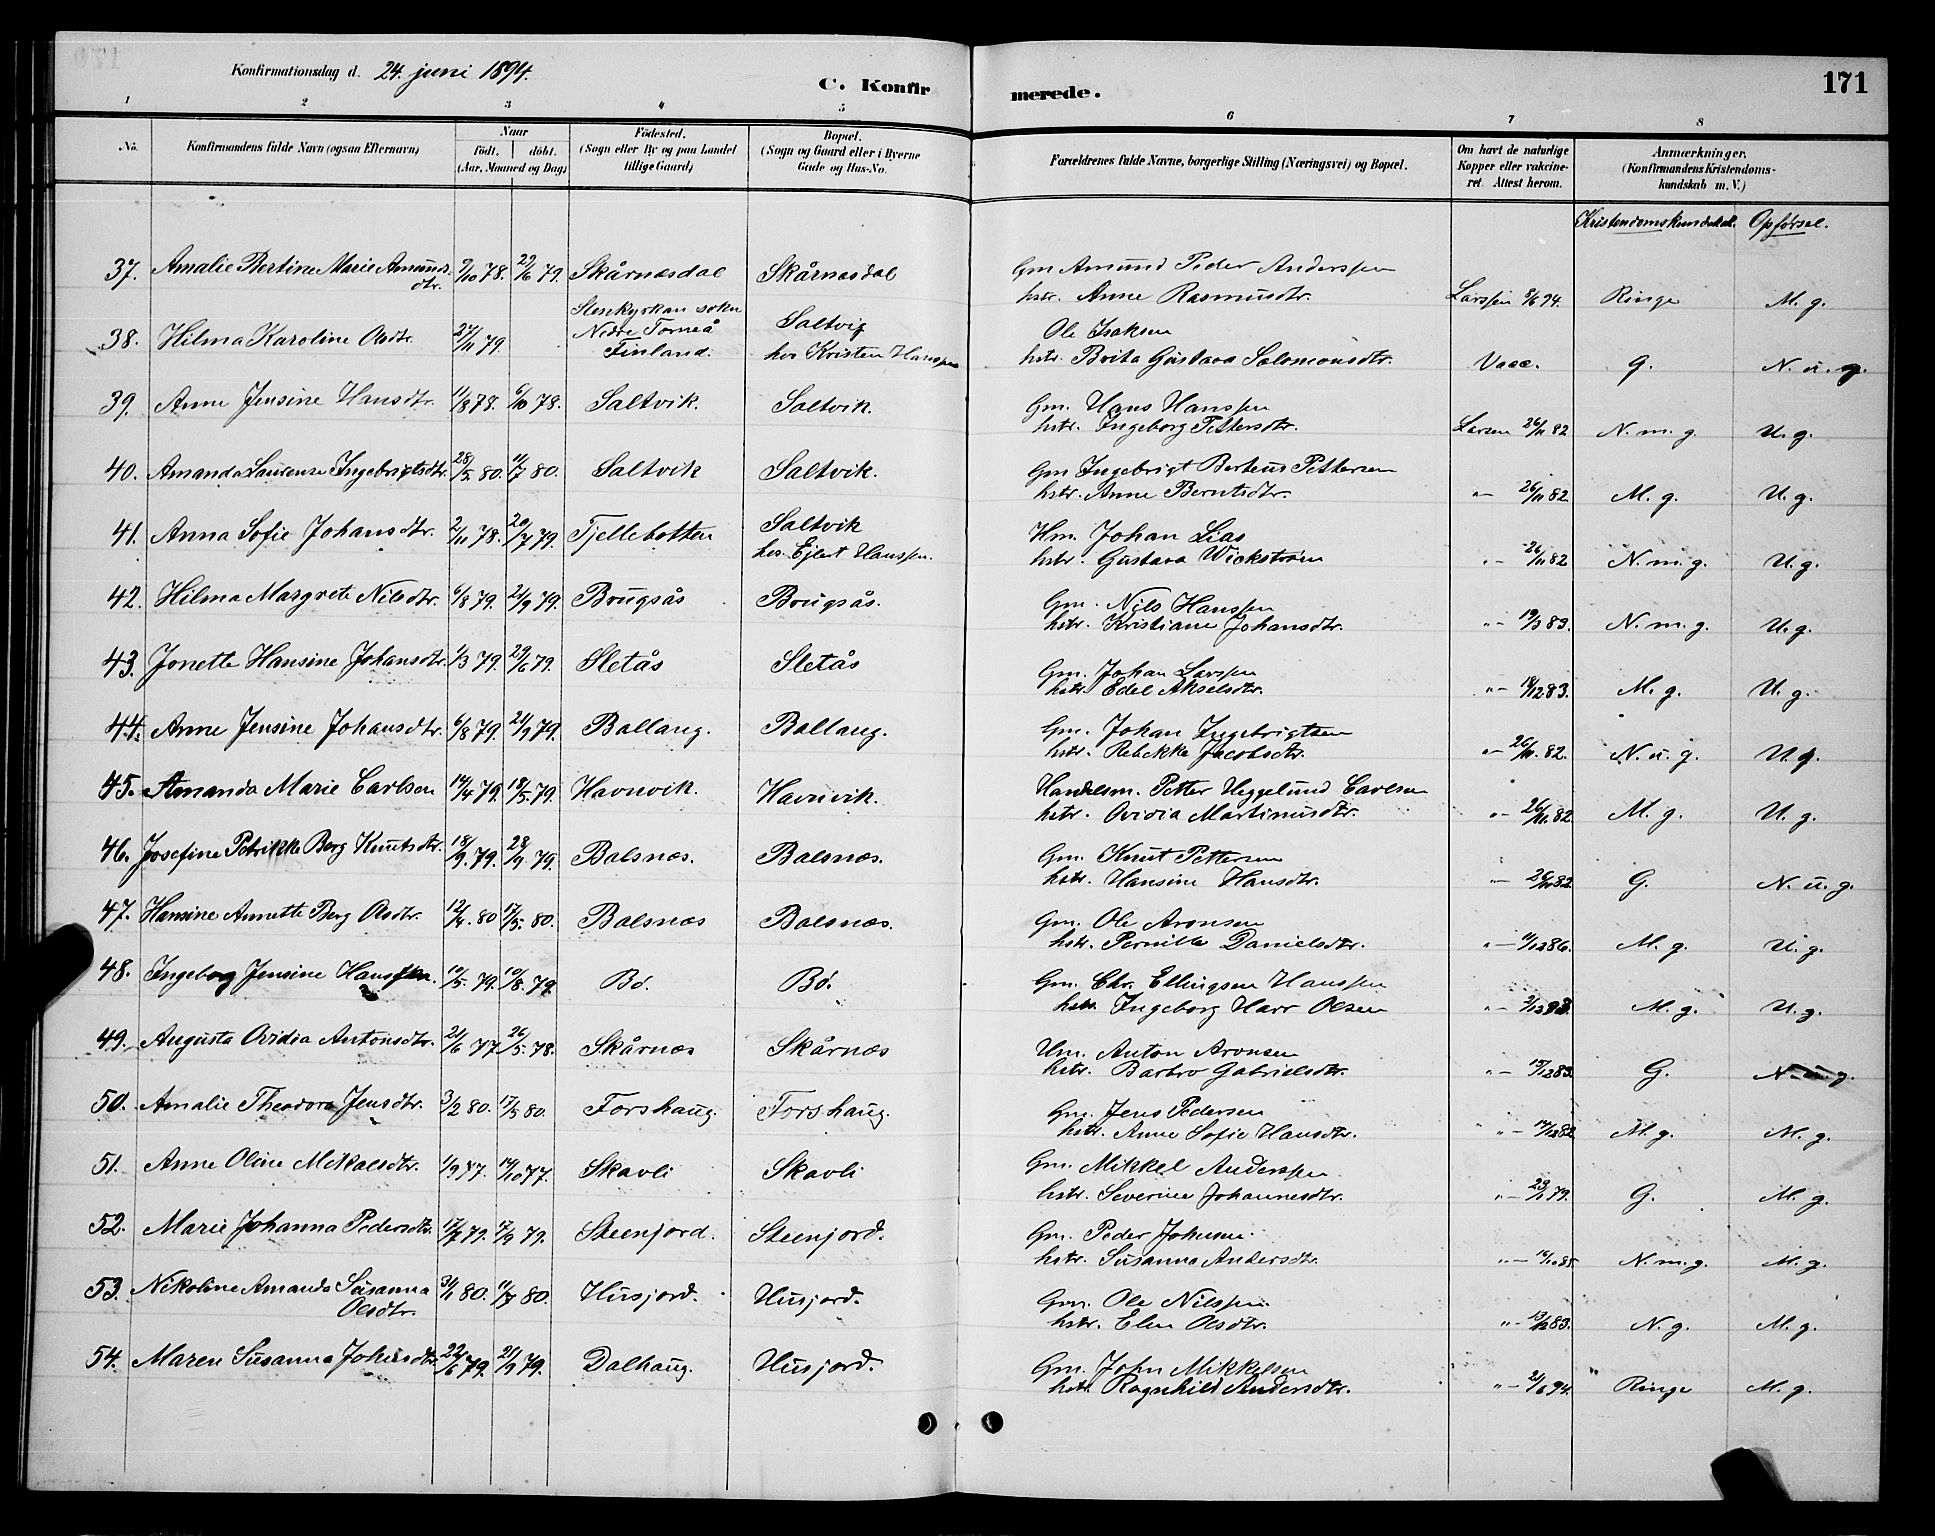 Konfirmationsdag d. 24. juni 1894.
C. Konfirmerede.
171
1 2 3 4 5 6 7 8
No.
Konfirmandens fulde Navn (ogsaa Efternavn)
Naar født. døbt. (Aar, Maaned og Dag)
Fødested. (Sogn eller By og paa Landet tillige Gaard)
Bopæl. (Sogn og Gaard eller i Byerne Gade og Hus-No.
Forældrenes fulde Navne, borgerlige Stilling (Næringsvei) og Bopæl.
Om havt de naturlige Kopper eller vakcineret. Attest herom.
Anmærkninger. (Konfirmandens Kristendomskundskab m. V.)
Kristendomskundskab. Opførsel.
37. Amalie Bertine Marie Amundsdtr. 9/10 78. 29/6 79. Skårnæsdal Skårnæsdal
Gm Amund Peder Anderssen
hstr. Anne Rasmusdtr. Larssen 8/6 94. Ringe M. g.
38. Hilma Karoline Olsdtr. 27/11 79. Stenkyrkan sokn Nedre Torneå Finland. Saltvig hos Kristen Hanssen
Ole Isaksen
hstr. Brita Gustava Salomonsdtr. Vacc. G. N. u. g.
39. Anne Jensine Hansdtr. 11/8 78. 6/10 78. Saltvik. Saltvik.
Gm. Hans Hanssen
hstr. Ingeborg Pettersdtr. Larsen 26/11 82 N. m. g. U. g.
40. Amanda Laurense Ingebrigtsdtr. 28/5 80. 11/7 80. Saltvik Saltvik.
Gm Ingebrigt Berteus Pettersen
hstr. Anne Berntsdtr. " — 26/11 82 M. g. U. g.
41. Anna Sofie Johansdtr. 2/11 78. 20/7 79. Fjellebotten Saltvik hos Ejlert Hanssen.
Hm. Johan Lias
hstr. Gustava Wickstrøm " — 26/11 82 N. m. g. U. g.
42. Hilma Margrete Nilsdtr. 6/8 79. 21/9 79. Brugsås Brugsås.
Gm. Nils Hanssen
hstr. Kristiane Johansdtr. " — 19/3 83. N. m. g. U. g.
43. Jonette Hansine Johansdtr. 1/3 79. 29/6 79. Sletås Sletås
Gm. Johan Larssen
hstr. Edel Akselsdtr. " — 18/12 83. M. g. U. g.
44. Anne Jensine Johansdtr. 6/8 79. 21/9 79. Ballang. Ballang.
Gm. Johan Ingebrigtsen
hstr. Rebekka Jacobsdtr. " — 26/11. 82. N. u. g. U. g.
45. Amanda Marie Carlsen 14/4 79. 18/5. 79. Havnvik. Havnvik.
Handelsm. Petter Heggelund Carlsen
hstr. Ovidia Martinusdtr. " — 26/11. 82. M. g. U. g.
46. Josefine Petrikke Berg Knutsdtr. 18/9. 79. 28/9 79. Balsnæs. Balsnæs.
Gm. Knut Pettersen
hstr. Hansine Hansdtr. " — 26/11 82. G. N. u. g.
47. Hansine Annette Berg Olsdtr. 12/4. 80 17/5. 80. Balsnæs Balsnæs.
Gm. Ole Aronsen
hstr. Pernilla Danielsdtr. " — 11/12 86. M. g. U. g.
48. Ingeborg Jensine Hanssen. 10/5. 79. 10/8. 79. Bø. Bø.
Gm. Chr. Ellingsen Hanssen
hstr. Ingeborg Harr Olsen " — M. g. U. g.
49. Augusta Ovidia Antonsdtr. 21/6 77 26/5. 78. Skårnæs Skårnæs
Hm. Anton Aronsen
hstr. Barbro Gabrielsdtr. " — 15/12 83. G. N. u. g.
50. Amalie Theodora Jensdtr. 3/2 80. 17/5 80. Forshaug. Forshaug.
Gm. Jens Pedersen
hstr. Anne Sofie Hansdtr. " — M. g. M. g.
51. Anne Oline Mikalsdtr. 1/9 77. 14/10 77. Skavli Skavli
Gm. Mikkel Anderssen
hstr. Severine Johannesdtr. " — G. M. g.
52. Marie Johanna Pedersdtr. 17/7 79. 17/9 79. Steenjord. Steenjord.
Gm. Peder Johnsen.
hstr. Susanna Andersdtr. " — N. m. g. M. g.
53. Nikoline Amanda Susanna Olsdtr. 31/1 80. 11/7 80. Husjord. Husjord.
Gm. Ole Nilssen.
hstr. Elen Olsdtr. " — 13/12 83. N. g. M. g.
54. Maren Susanna Johnsdtr. 22/6 79. 21/9 79. Dalhaug. Husjord.
Gm. John Mikkelsen
hstr. Ragnhild Andersdtr. " — 21/6 94. Ringe M. g.